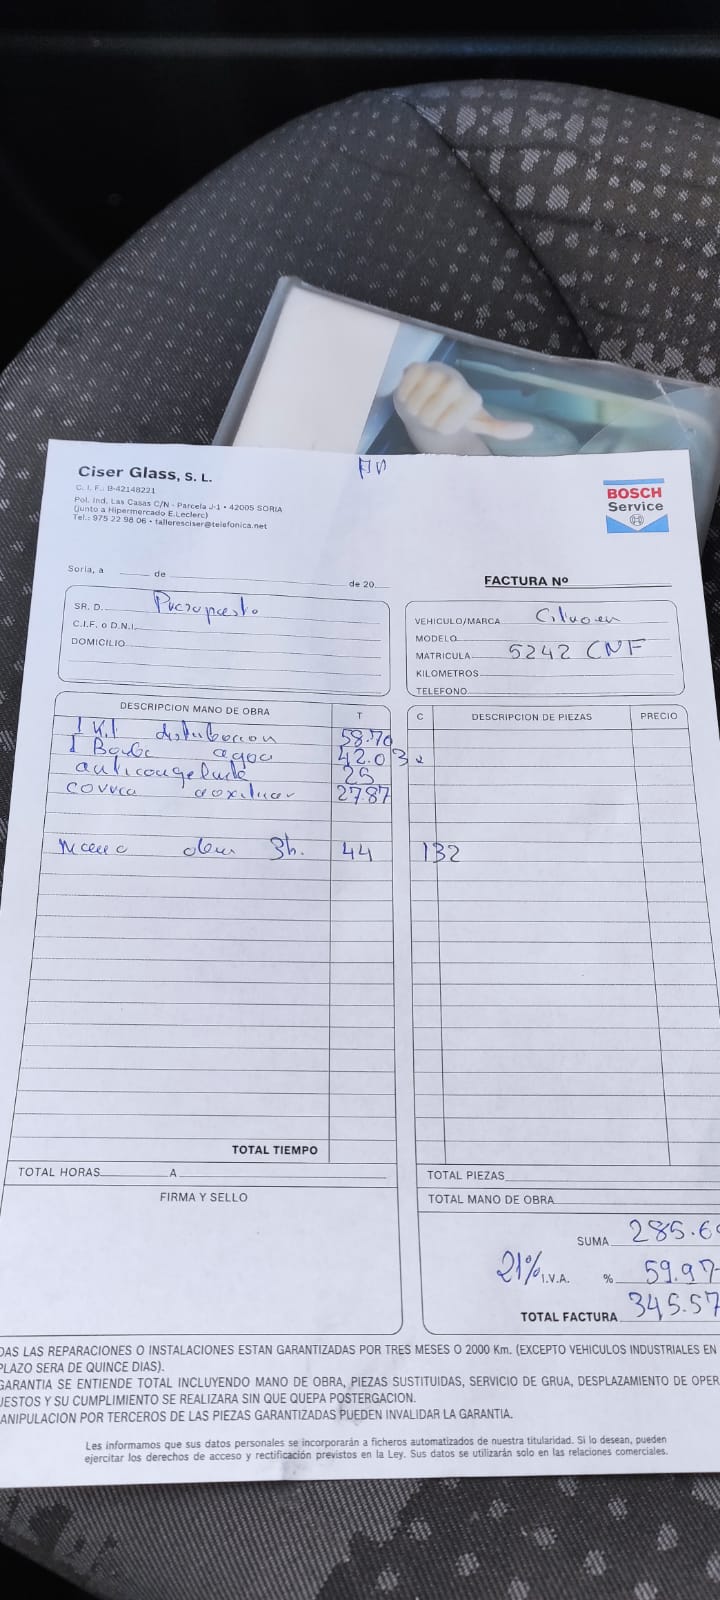 Ciser Glass, S. L.
C. I. F.: B-42148221
Pol. Ind. Las Casas C/N - Parcela J-1 • 42005 SORIA
(junto a Hipermercado E.Leclerc)
Tel.: 975 22 98 06 • talleresciser@telefonica.net
BOSCH
Service
Soria, a de de 20
FACTURA Nº
SR. D. Presupuesto
C.I.F. o D.N.I.
DOMICILIO
VEHICULO/MARCA Citroen
MODELO
MATRICULA 5242 CNF
KILOMETROS
TELEFONO
DESCRIPCION MANO DE OBRA T
C DESCRIPCION DE PIEZAS PRECIO
1 Kit distribucion 58.70
1 Bomba agua 42.03
anticongelante 25
correa auxiliar 27.87
mano obra 3h. 44 132
TOTAL TIEMPO
TOTAL HORAS A
FIRMA Y SELLO
TOTAL PIEZAS
TOTAL MANO DE OBRA
SUMA 285.6
21% I.V.A. % 59.97
TOTAL FACTURA 345.57
DAS LAS REPARACIONES O INSTALACIONES ESTAN GARANTIZADAS POR TRES MESES O 2000 Km. (EXCEPTO VEHICULOS INDUSTRIALES EN
PLAZO SERA DE QUINCE DIAS).
GARANTIA SE ENTIENDE TOTAL INCLUYENDO MANO DE OBRA, PIEZAS SUSTITUIDAS, SERVICIO DE GRUA, DESPLAZAMIENTO DE OPER
UESTOS Y SU CUMPLIMIENTO SE REALIZARA SIN QUE QUEPA POSTERGACION.
ANIPULACION POR TERCEROS DE LAS PIEZAS GARANTIZADAS PUEDEN INVALIDAR LA GARANTIA.
Les informamos que sus datos personales se incorporarán a ficheros automatizados de nuestra titularidad. Si lo desean, pueden
ejercitar los derechos de acceso y rectificación previstos en la Ley. Sus datos se utilizarán solo en las relaciones comerciales.